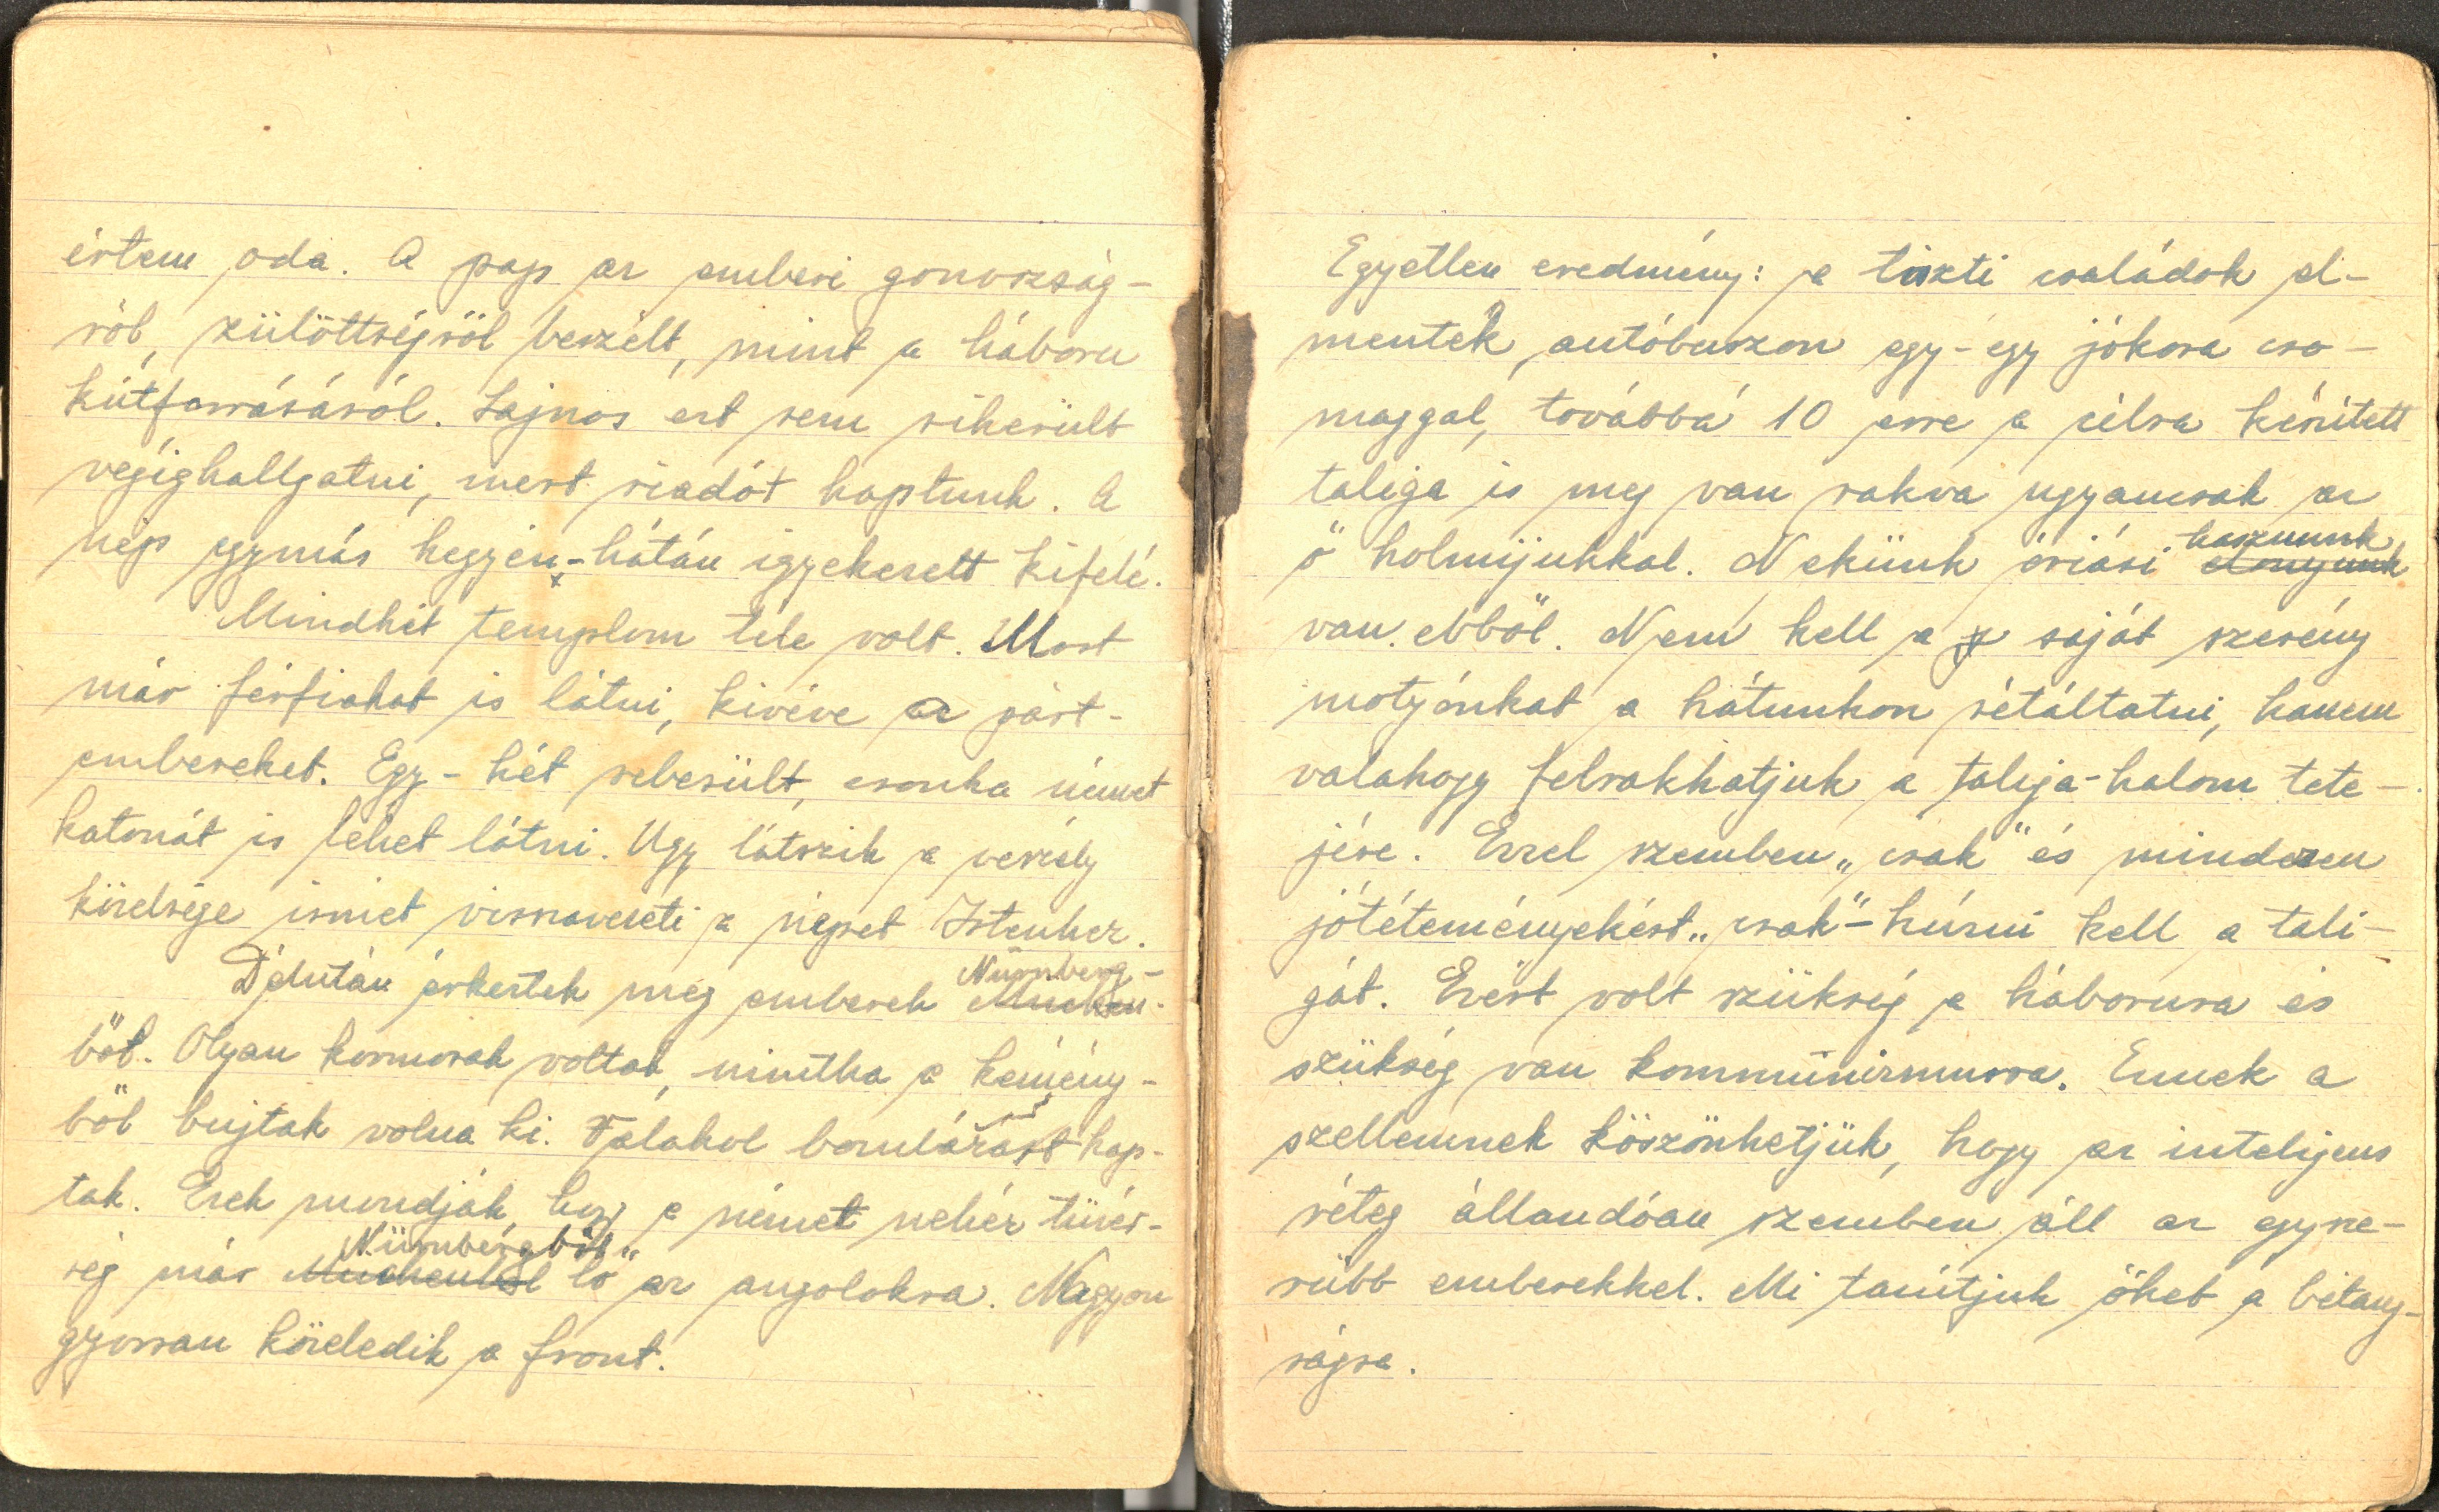 értem oda. A pap az emberi gonoszság-
ról, züllöttségről beszélt, mint a háboru
kútforrásáról. Sajnos ezt sem sikerült
végighallgatni, mert riadót kaptunk. A
nép egymás hegyén-hátán igyekezett kifelé.
Mindhét templom tele volt. Most
már férfiakat is látni, kivéve a párt-
embereket. Egy-két sebesült, csonka német
katonát is lehet látni. Ugy látszik a veszély
közelsége ismét visszavezeti a népet Istenhez.
Nürnberg-
Délután érkeztek meg emberek München-
ből. Olyan kormosak voltak, mintha a kémény-
ből bujtak volna ki. Valahol bombázást kap-
tak. Ezek mondják, hogy a német nehéz tüzér-
Nürnbergből
ség már Münchenből lő az angolokra. Nagyon
gyorsan közeledik a front.
Egyetlen eredmény: a tiszti családok el-
mentek, autóbuszon egy-egy jókora cso-
maggal, továbbá 10 erre a célra készített
taliga is meg van rakva ugyancsak az
ő holmijukkal. Nekünk óriási hasznunk
előnyünk
van ebből. Nem kell a saját szerény
motyónkat a hátunkon sétáltatni, hanem
valahogy felrakhatjuk a taliga-halom tete-
jére. Ezzel szemben „csak" és mindezen
jótéteményekért „csak"-húzni kell a tali-
gát. Ezért volt szükség a háborura és
szükség van kommunizmusra. Ennek a
szellemnek köszönhetjük, hogy az inteligens
réteg állandóan szemben áll az egysze-
rübb emberekkel. Mi tanítjuk őket a bitang-
ságra.